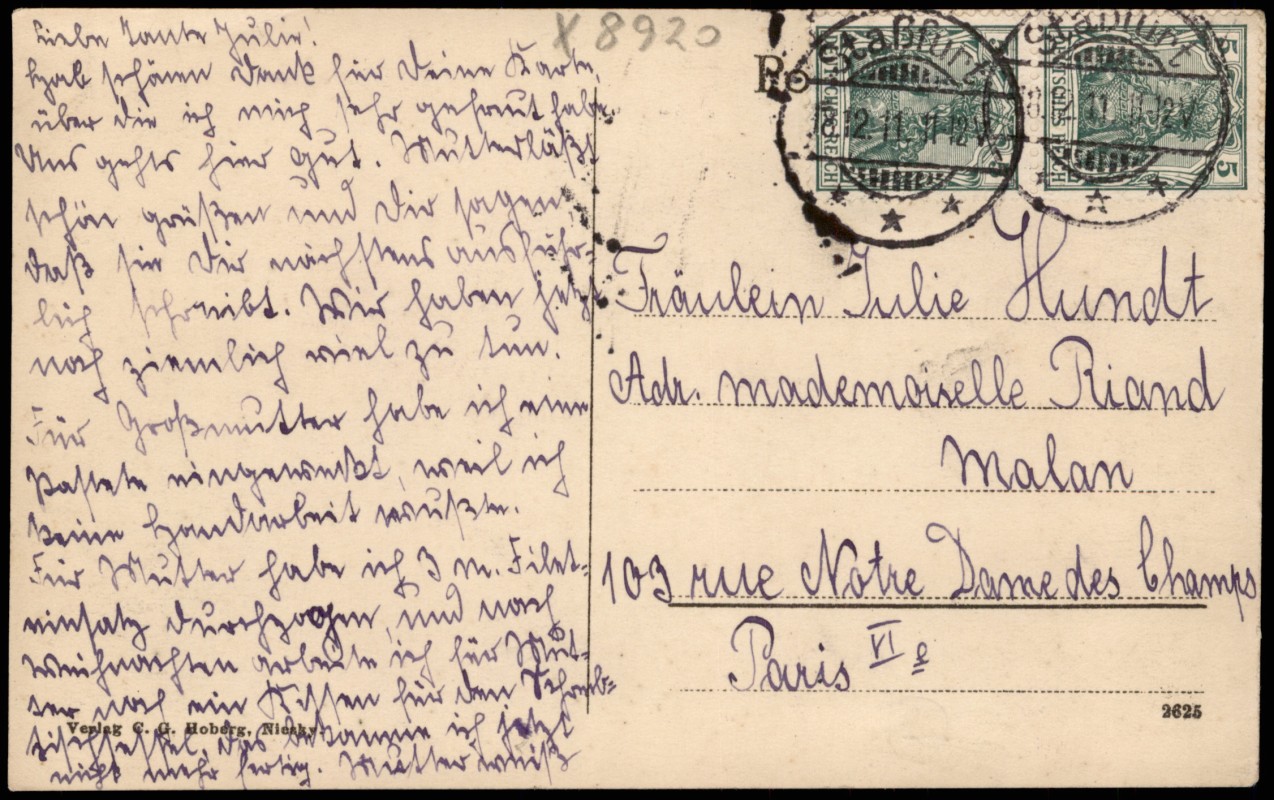 Liebe Tante Julie!
hab schönen Dank für Deine Karte,
über die ich mich sehr gefreut habe.
Uns gehts hier gut. Mutter läßt
schön grüßen und Dir sagen
daß sie Dir nächstens ausführ-
lich schreibt. Wir haben jetzt
noch ziemlich viel zu tun.
Für Großmutter habe ich eine
Pastete eingeweckt, weil ich
keine Handarbeit wußte.
Für Mutter habe ich 3 m. Filet-
einsatz durchzogen, und nach
Weihnachten arbeite ich für Mut-
ter noch ein Kissen für den Schreib-
tischsessel, das bekomme ich jetzt
nicht mehr fertig. Mutter weiß
Verlag C. G. Hoberg, Niesky.
X 8920
Po
Staßfurt
12.11.11-12V
Staßfurt
11-12V
DEUTSCHES REICH
5
5
Fräulein Julie Hundt
Adr. Mademoiselle Riand
Malan
103 rue Notre Dame des Champs
Paris VI e
2625